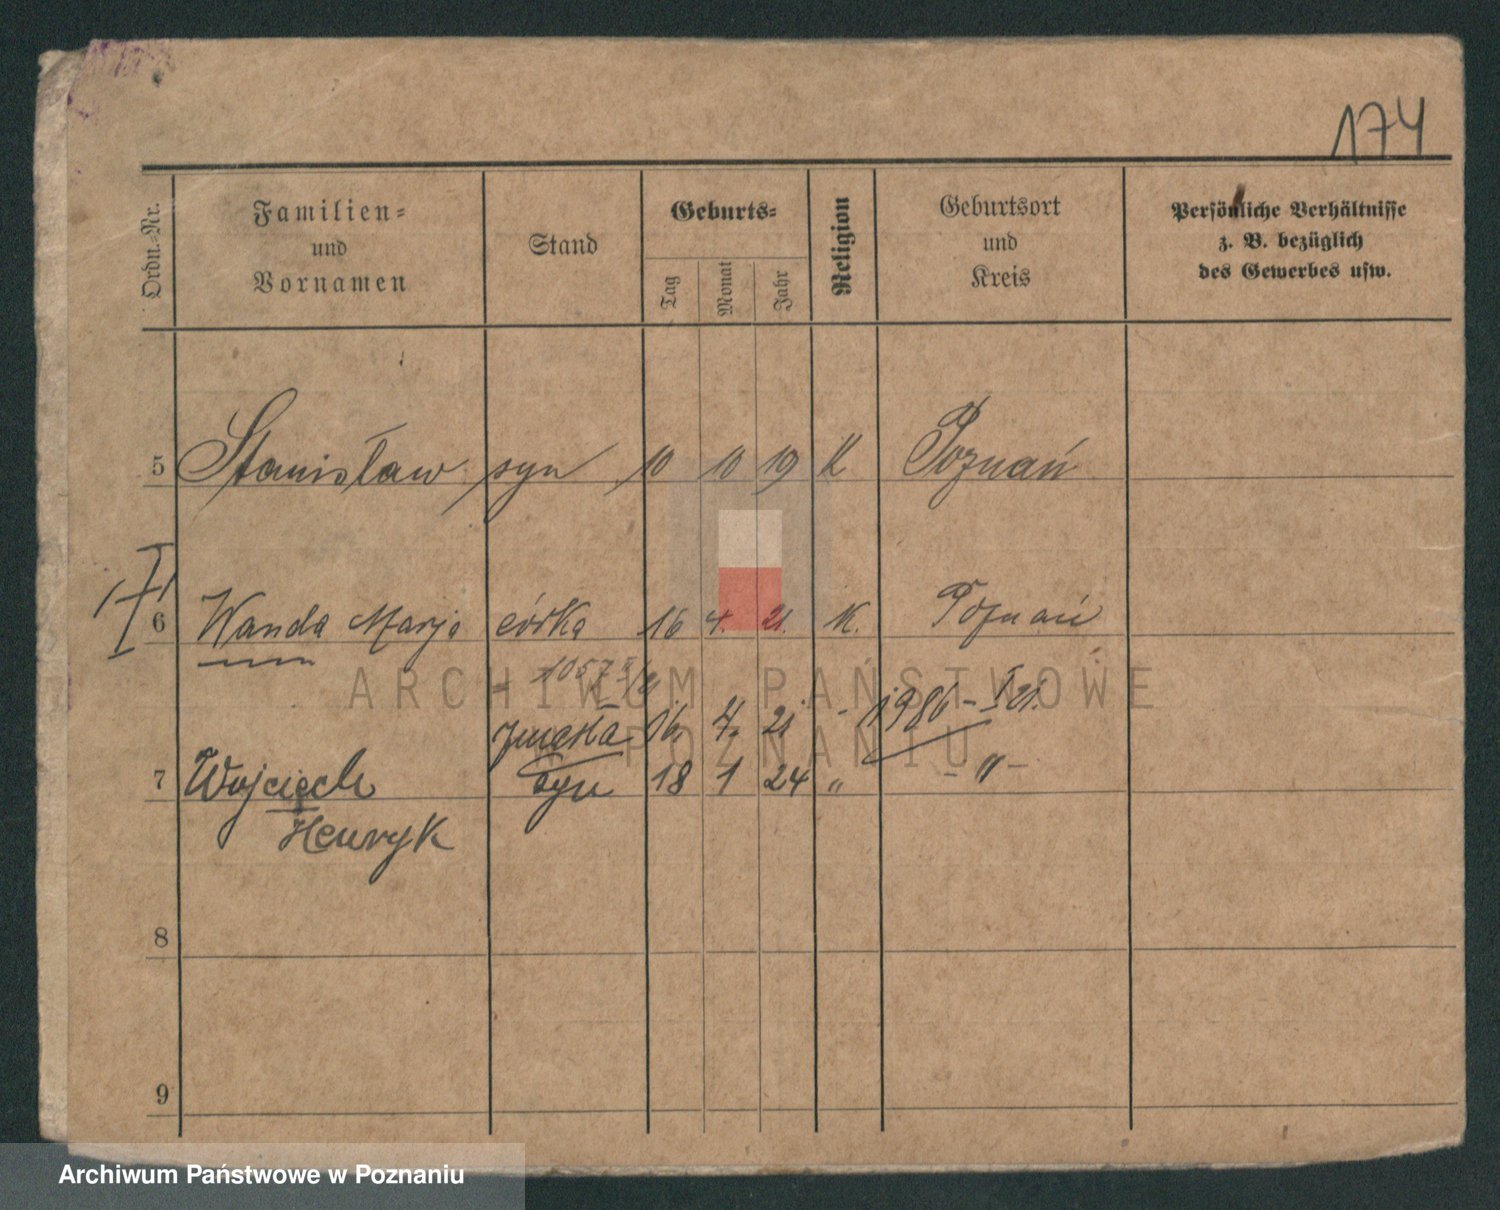 174
Ordn.-Nr.
Familien-
und
Vornamen
Stand
Geburts-
Tag
Monat
Jahr
Religion
Geburtsort
und
Kreis
Persönliche Verhältnisse
z. B. bezüglich
des Gewerbes usw.
5 Stanisław syn 10 10 19 K Poznań
6 Wanda Marja córka 16 4. 21. K. Poznań
1057
zmarła 16. 4. 21 1986 - I 21.
7 Wojciech syn 18 1 24 " - " -
Henryk
8
9
ARCHIWUM PAŃSTWOWE
W POZNANIU
Archiwum Państwowe w Poznaniu